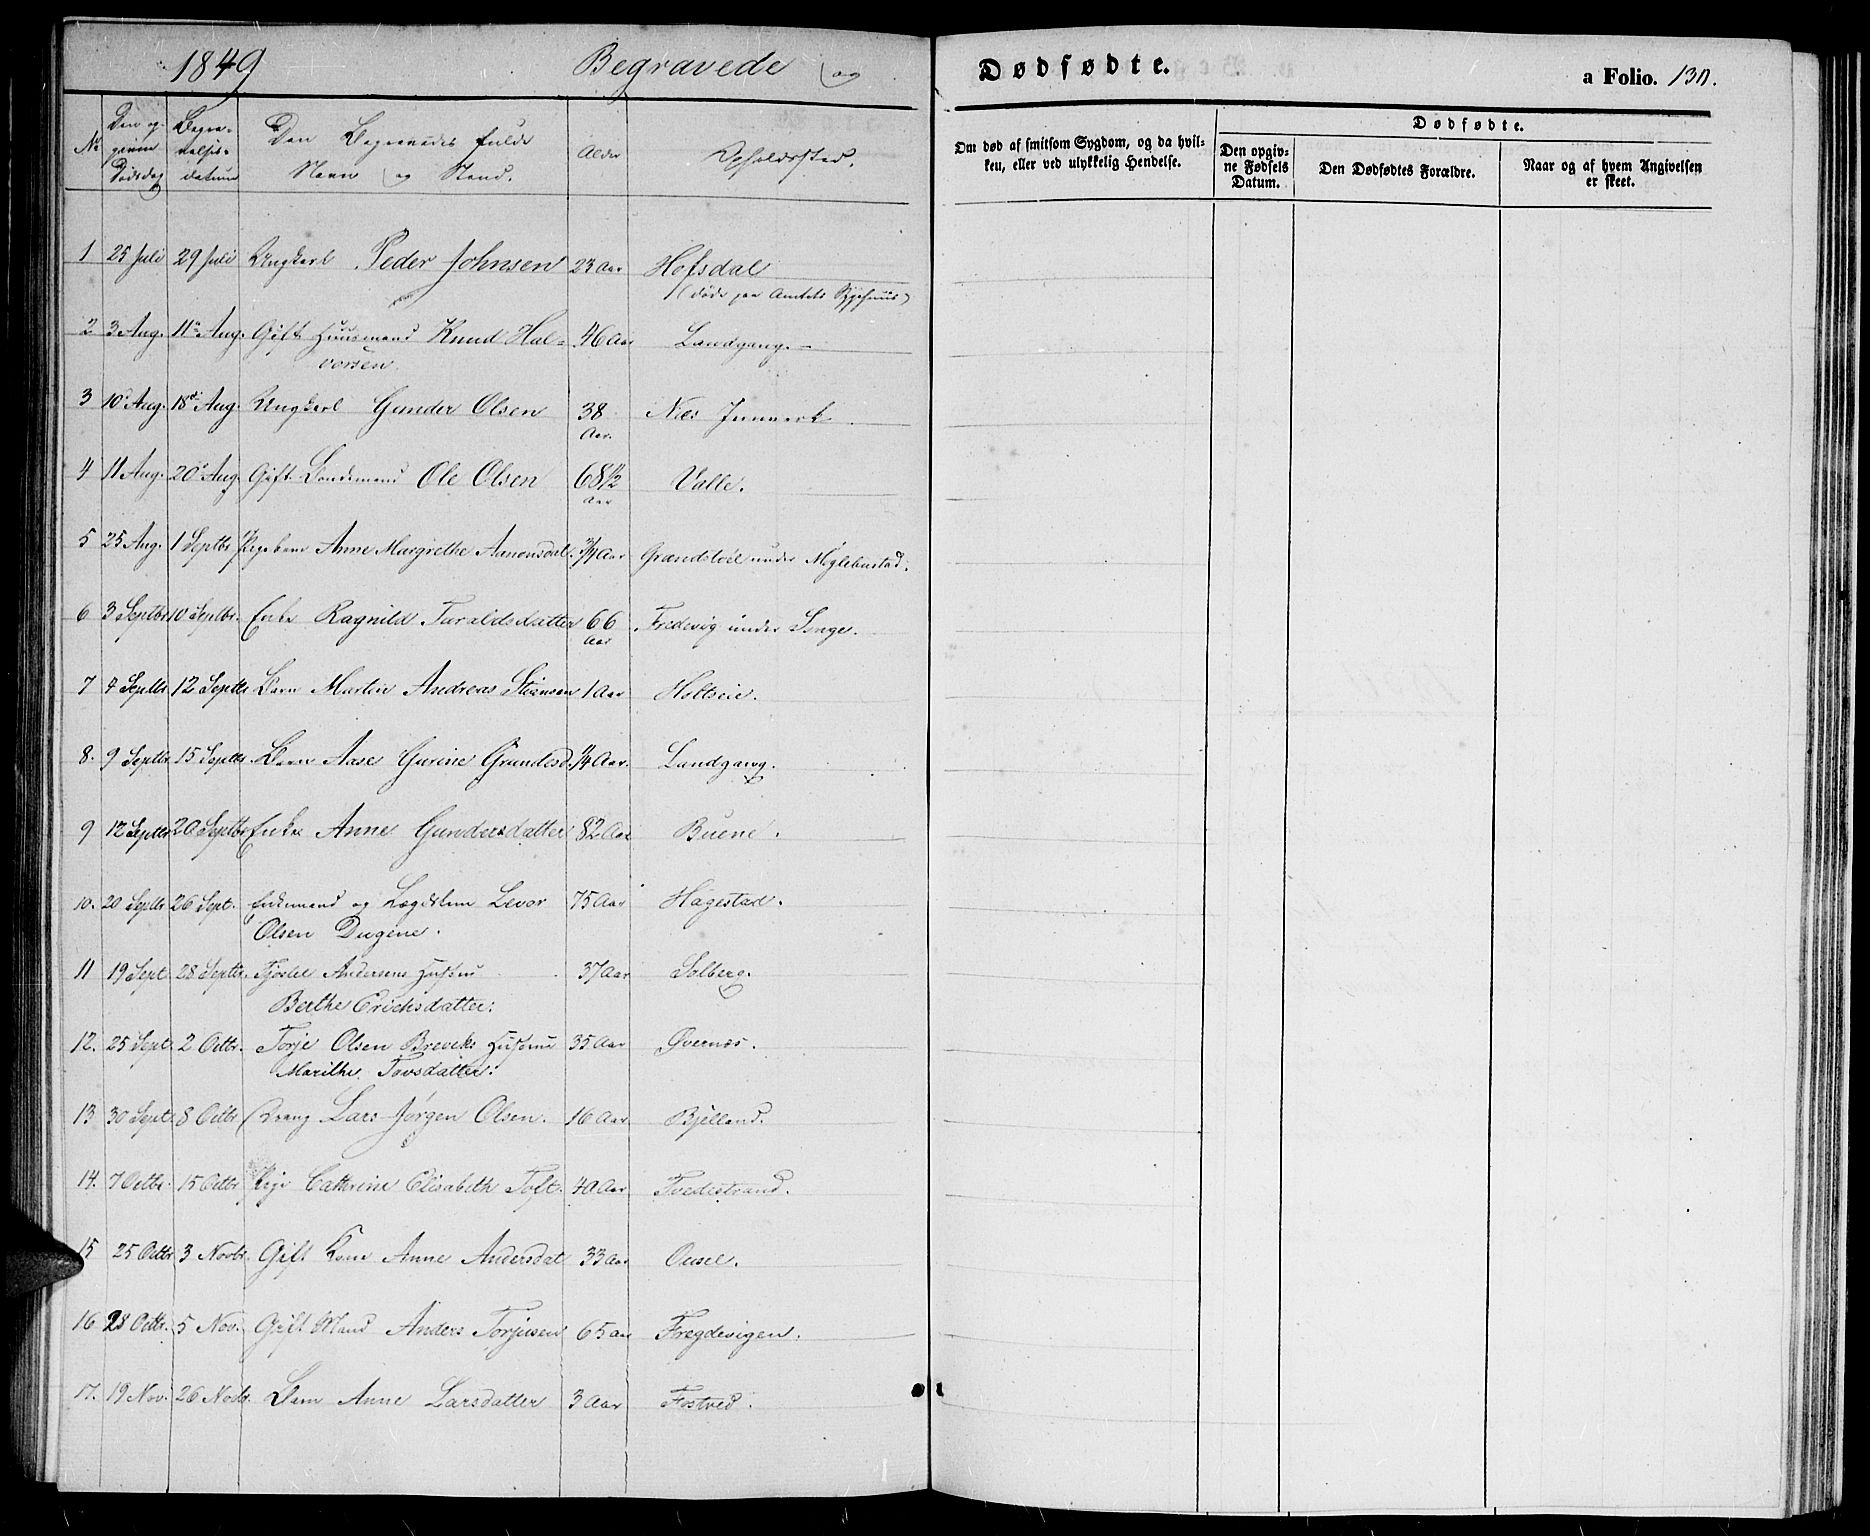 1849 Begravede og
Dødfødte.
a Folio. 130.
No
Den op-
givne
Dødsdag
Begra-
velses-
datum
Den Begravedes fulde
Navn og Stand.
Alder
Opholdssted.
Om død af smitsom Sygdom, og da hvil-
ken, eller ved ulykkelig Hendelse.
Dødfødte.
Den opgiv-
ne Fødsels
Datum.
Den Dødfødtes Forældre.
Naar og af hvem Angivelsen
er skeet.
1 25 Juli 29 Juli Ungkarl Peder Johnsen 23 Aar Hofsdal
(døde paa Amtets Sygehuus)
2 3 Aug. 11te Aug. Gift Huusmand Knud Hal= 46 Aar Landgang.
vorsen.
3 10 Aug. 18de Aug. Ungkarl Gunder Olsen 38 Næs Jernverk
Aar.
4 11 Aug. 20de Aug. Gift Bondemand Ole Olsen 68 1/2 Valle.
Aar
5 25 Aug. 1 Septbr Pigebarn Anne Margrethe Aanonsdat. 3/4 Aar Grændstøel under Møglebustad.
6 3 Septbr 10 Septbr. Enke Ragnild Taraldsdatter 66 Fredevig under Songe.
Aar
7 4 Septbr 12 Septbr Barn Martin Andreas Stiansen 1 Aar Holtseie.
8. 9 Septbr 15 Septbr. Barn Aase Gurine Grundesd. 1/4 Aar. Landgang.
9 12 Septbr 20 Septbr Enke Anne Gundersdatter 82 Aar Buene.
10. 20 Septbr 26 Sept. Enkemand og Lægdslem Levor 75 Aar Hagestad.
Olsen Dugene.
11 19 Sept 28 Septbr. Tjøstel Andersens Hustru 37 Aar Solberg.
Berthe Erichsdatter.
12. 25 Sept. 2 Octbr. Torje Olsen Breveks Hustru 35 Aar Øvernæs.
Marithe Tovsdatter.
13 30 Sept. 8 Octbr Dreng Lars Jørgen Olsen. 16 Aar Bjelland.
14. 7 Octbr. 15 Octbr Pige Cathrine Elisabeth Toft. 40 Aar Tvedestrand.
15 25 Octbr 3 Novbr. Gift Kone Anne Andersdat 33 Aar Ousel.
16 28 Octbr. 5 Nov. Gift Mand Anders Torjusen 65 Aar Fregdevigen.
17. 19 Nov. 26 Novbr. Barn Anne Larsdatter 3 Aar Fostved.